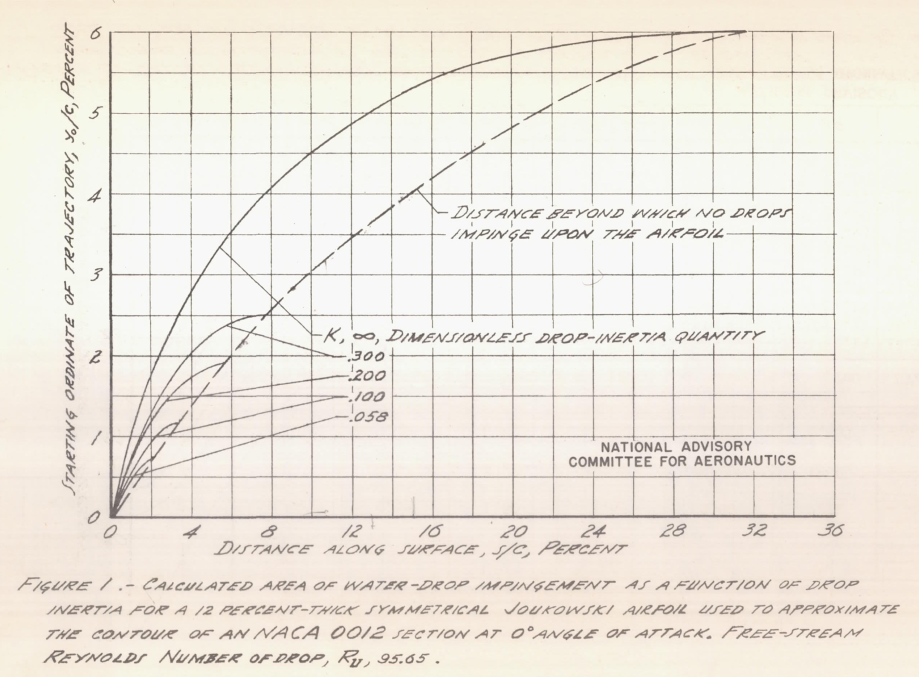 STARTING ORDINATE OF TRAJECTORY, y₀/c, PERCENT
6
5
4
3
2
1
0
DISTANCE BEYOND WHICH NO DROPS
IMPINGE UPON THE AIRFOIL
K, ∞, DIMENSIONLESS DROP-INERTIA QUANTITY
.300
.200
.100
.058
NATIONAL ADVISORY
COMMITTEE FOR AERONAUTICS
0 4 8 12 16 20 24 28 32 36
DISTANCE ALONG SURFACE, s/c, PERCENT
FIGURE 1 .- CALCULATED AREA OF WATER-DROP IMPINGEMENT AS A FUNCTION OF DROP
INERTIA FOR A 12 PERCENT-THICK SYMMETRICAL JOUKOWSKI AIRFOIL USED TO APPROXIMATE
THE CONTOUR OF AN NACA 0012 SECTION AT 0° ANGLE OF ATTACK. FREE-STREAM
REYNOLDS NUMBER OF DROP, R_U, 95.65 .